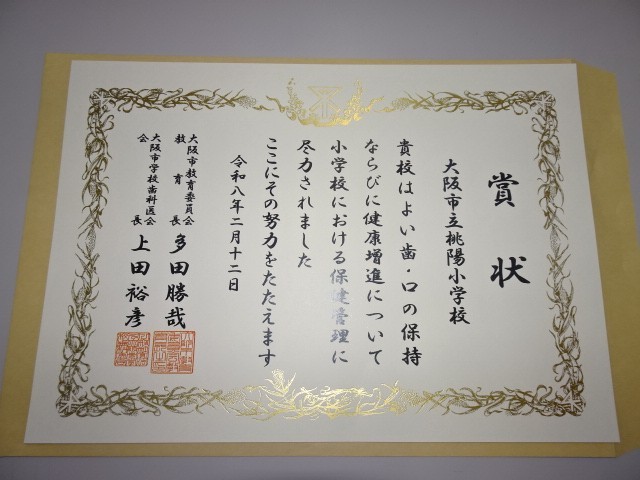 賞状
大阪市立桃陽小学校
貴校はよい歯・口の保持
ならびに健康増進について
小学校における保健管理に
尽力されました
ここにその努力をたたえます
令和八年二月十二日
大阪市教育委員会
教育長 多田勝哉
大阪市学校歯科医会
会長 上田裕彦